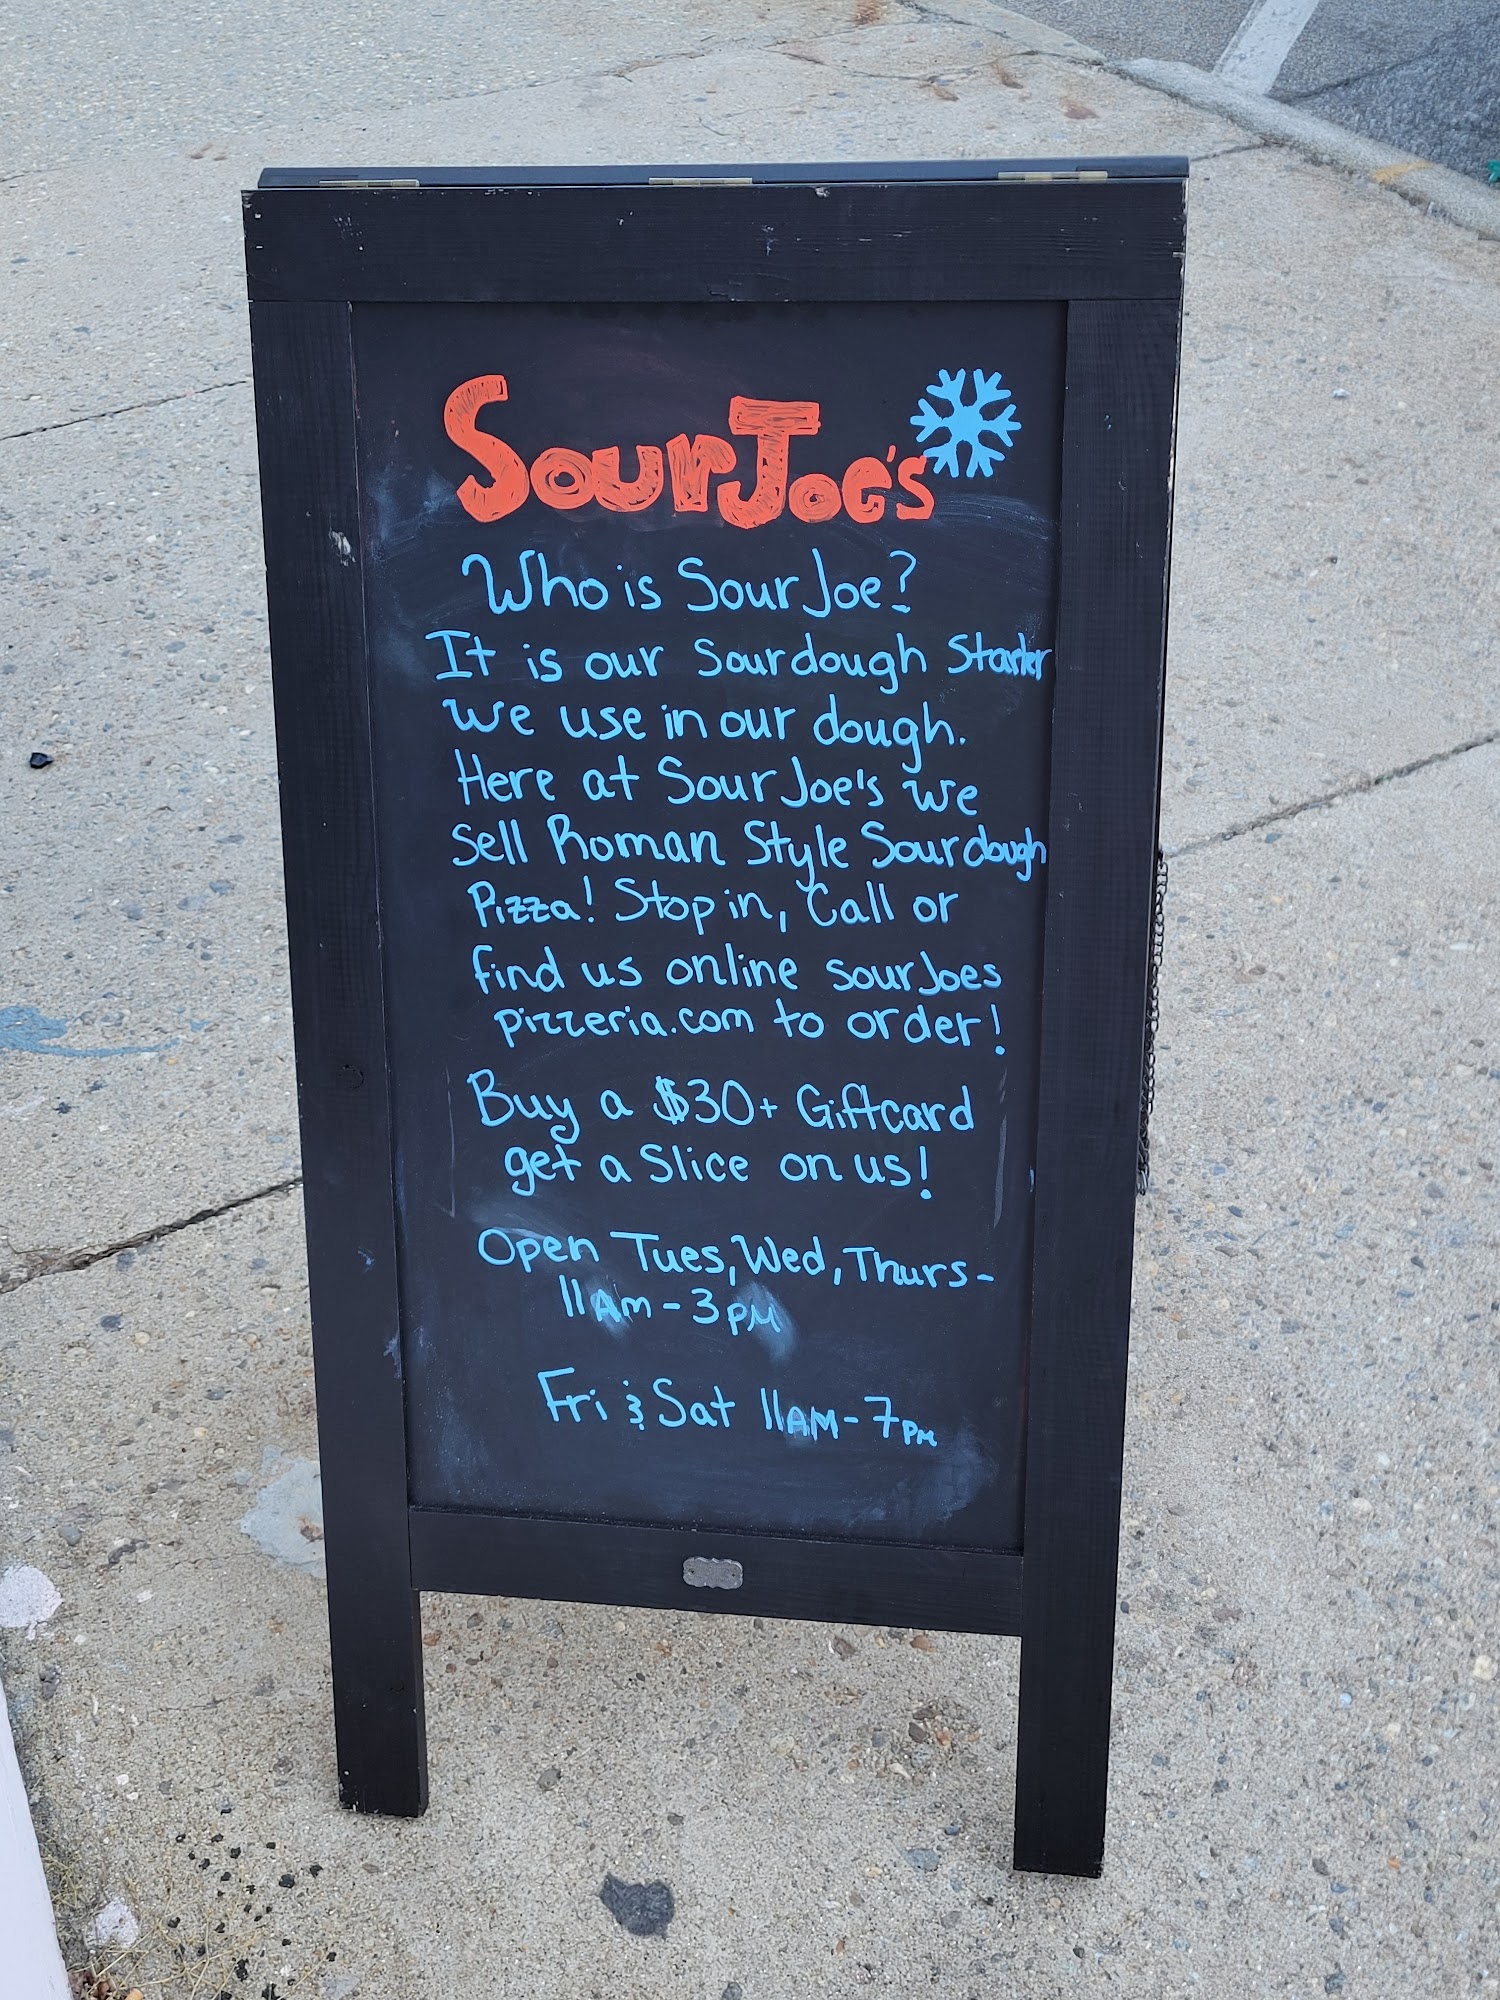 SourJoe's
Who is SourJoe?
It is our Sourdough Starter
we use in our dough.
Here at SourJoe's we
Sell Roman Style Sourdough
Pizza! Stop in, Call or
find us online sourJoes
pizzeria.com to order!
Buy a $30+ Giftcard
get a Slice on us!
Open Tues, Wed, Thurs-
11AM-3PM
Fri & Sat 11AM-7PM